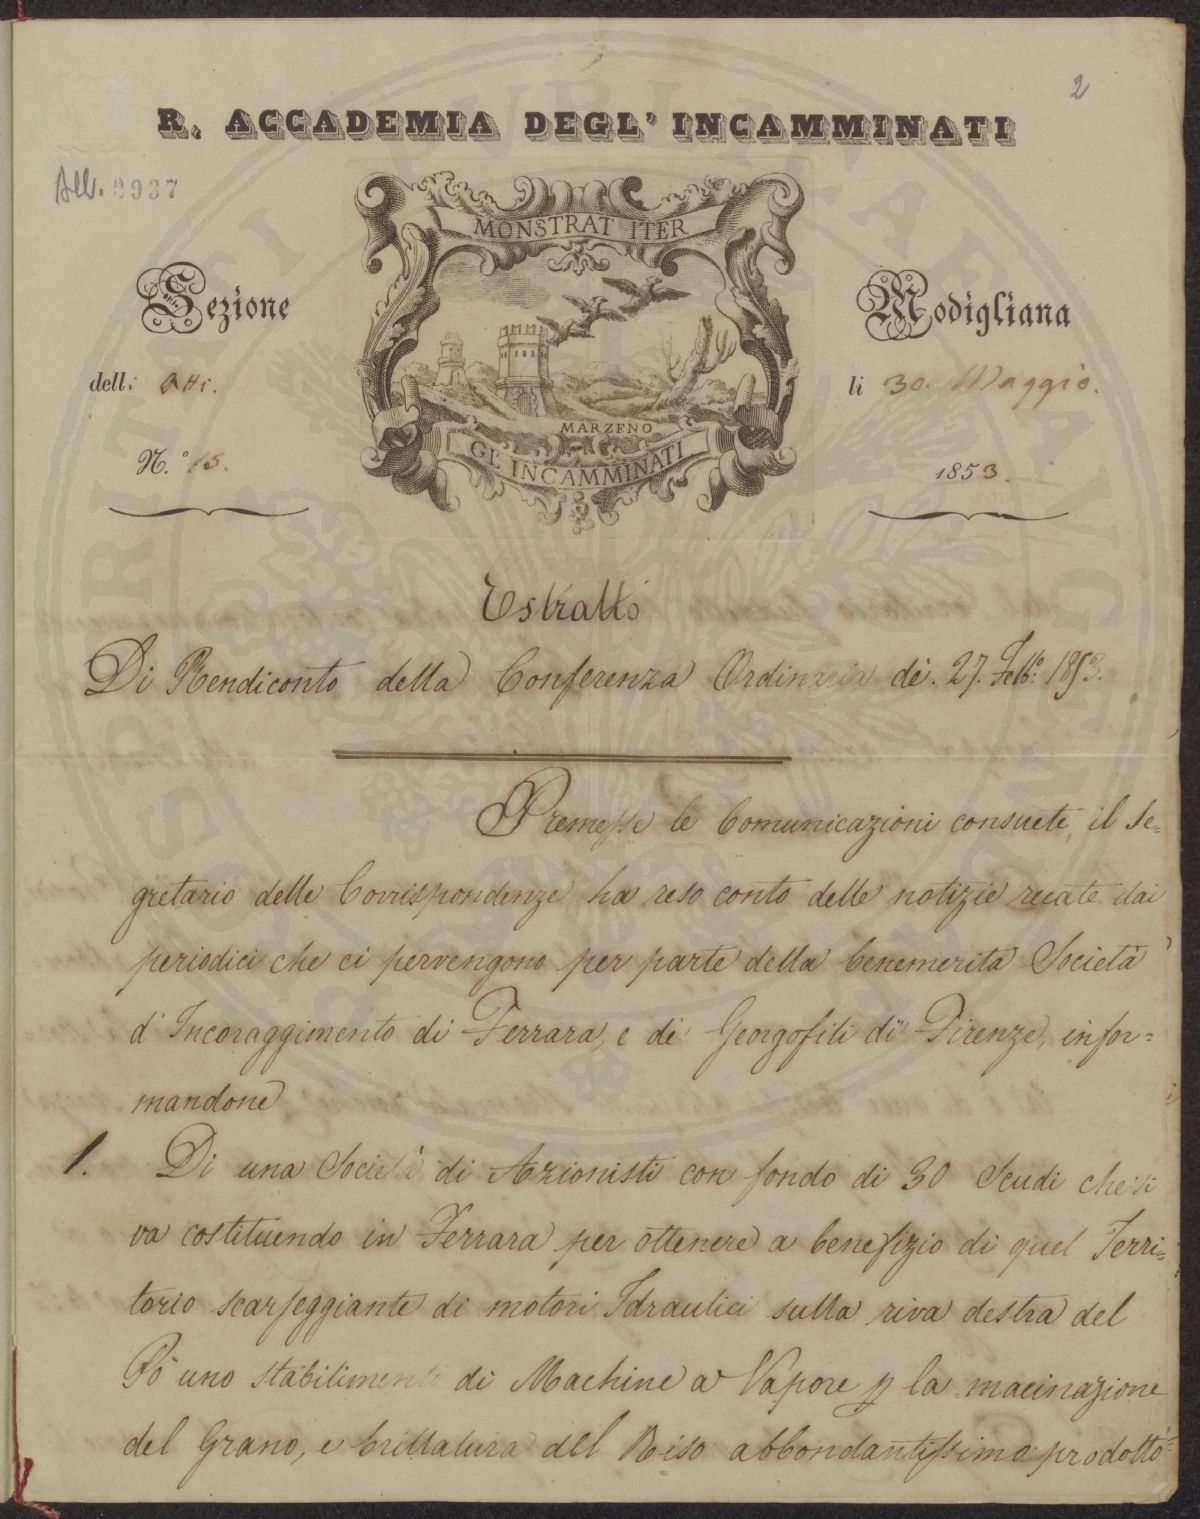 2
R. ACCADEMIA DEGL' INCAMMINATI
All. 8937
MONSTRAT ITER
Sezione
Modigliana
dell: Atti.
li 30. Maggio.
MARZENO
GL' INCAMMINATI
N.° 15.
1853.
Estratto
Di Rendiconto della Conferenza Ordinaria de'. 27. Febb.° 1853.
Premesse le Comunicazioni consuete, il Se=
gretario delle Corrispondenze ha reso conto delle notizie recate dai
periodici che ci pervengono per parte della benemerita Società
d'Incoraggimento di Ferrara, e di Georgofili di Firenze, infor=
mandone
1. Di una Società di Azionisti con fondo di 30 Scudi che si
va costituendo in Ferrara per ottenere a benefizio di quel Terri=
torio scarseggiante di motori Idraulici sulla riva destra del
Pò uno stabilimento di Machine a Vapore p la macinazione
del Grano, e brillatura del Riso abbondantissimo prodotto